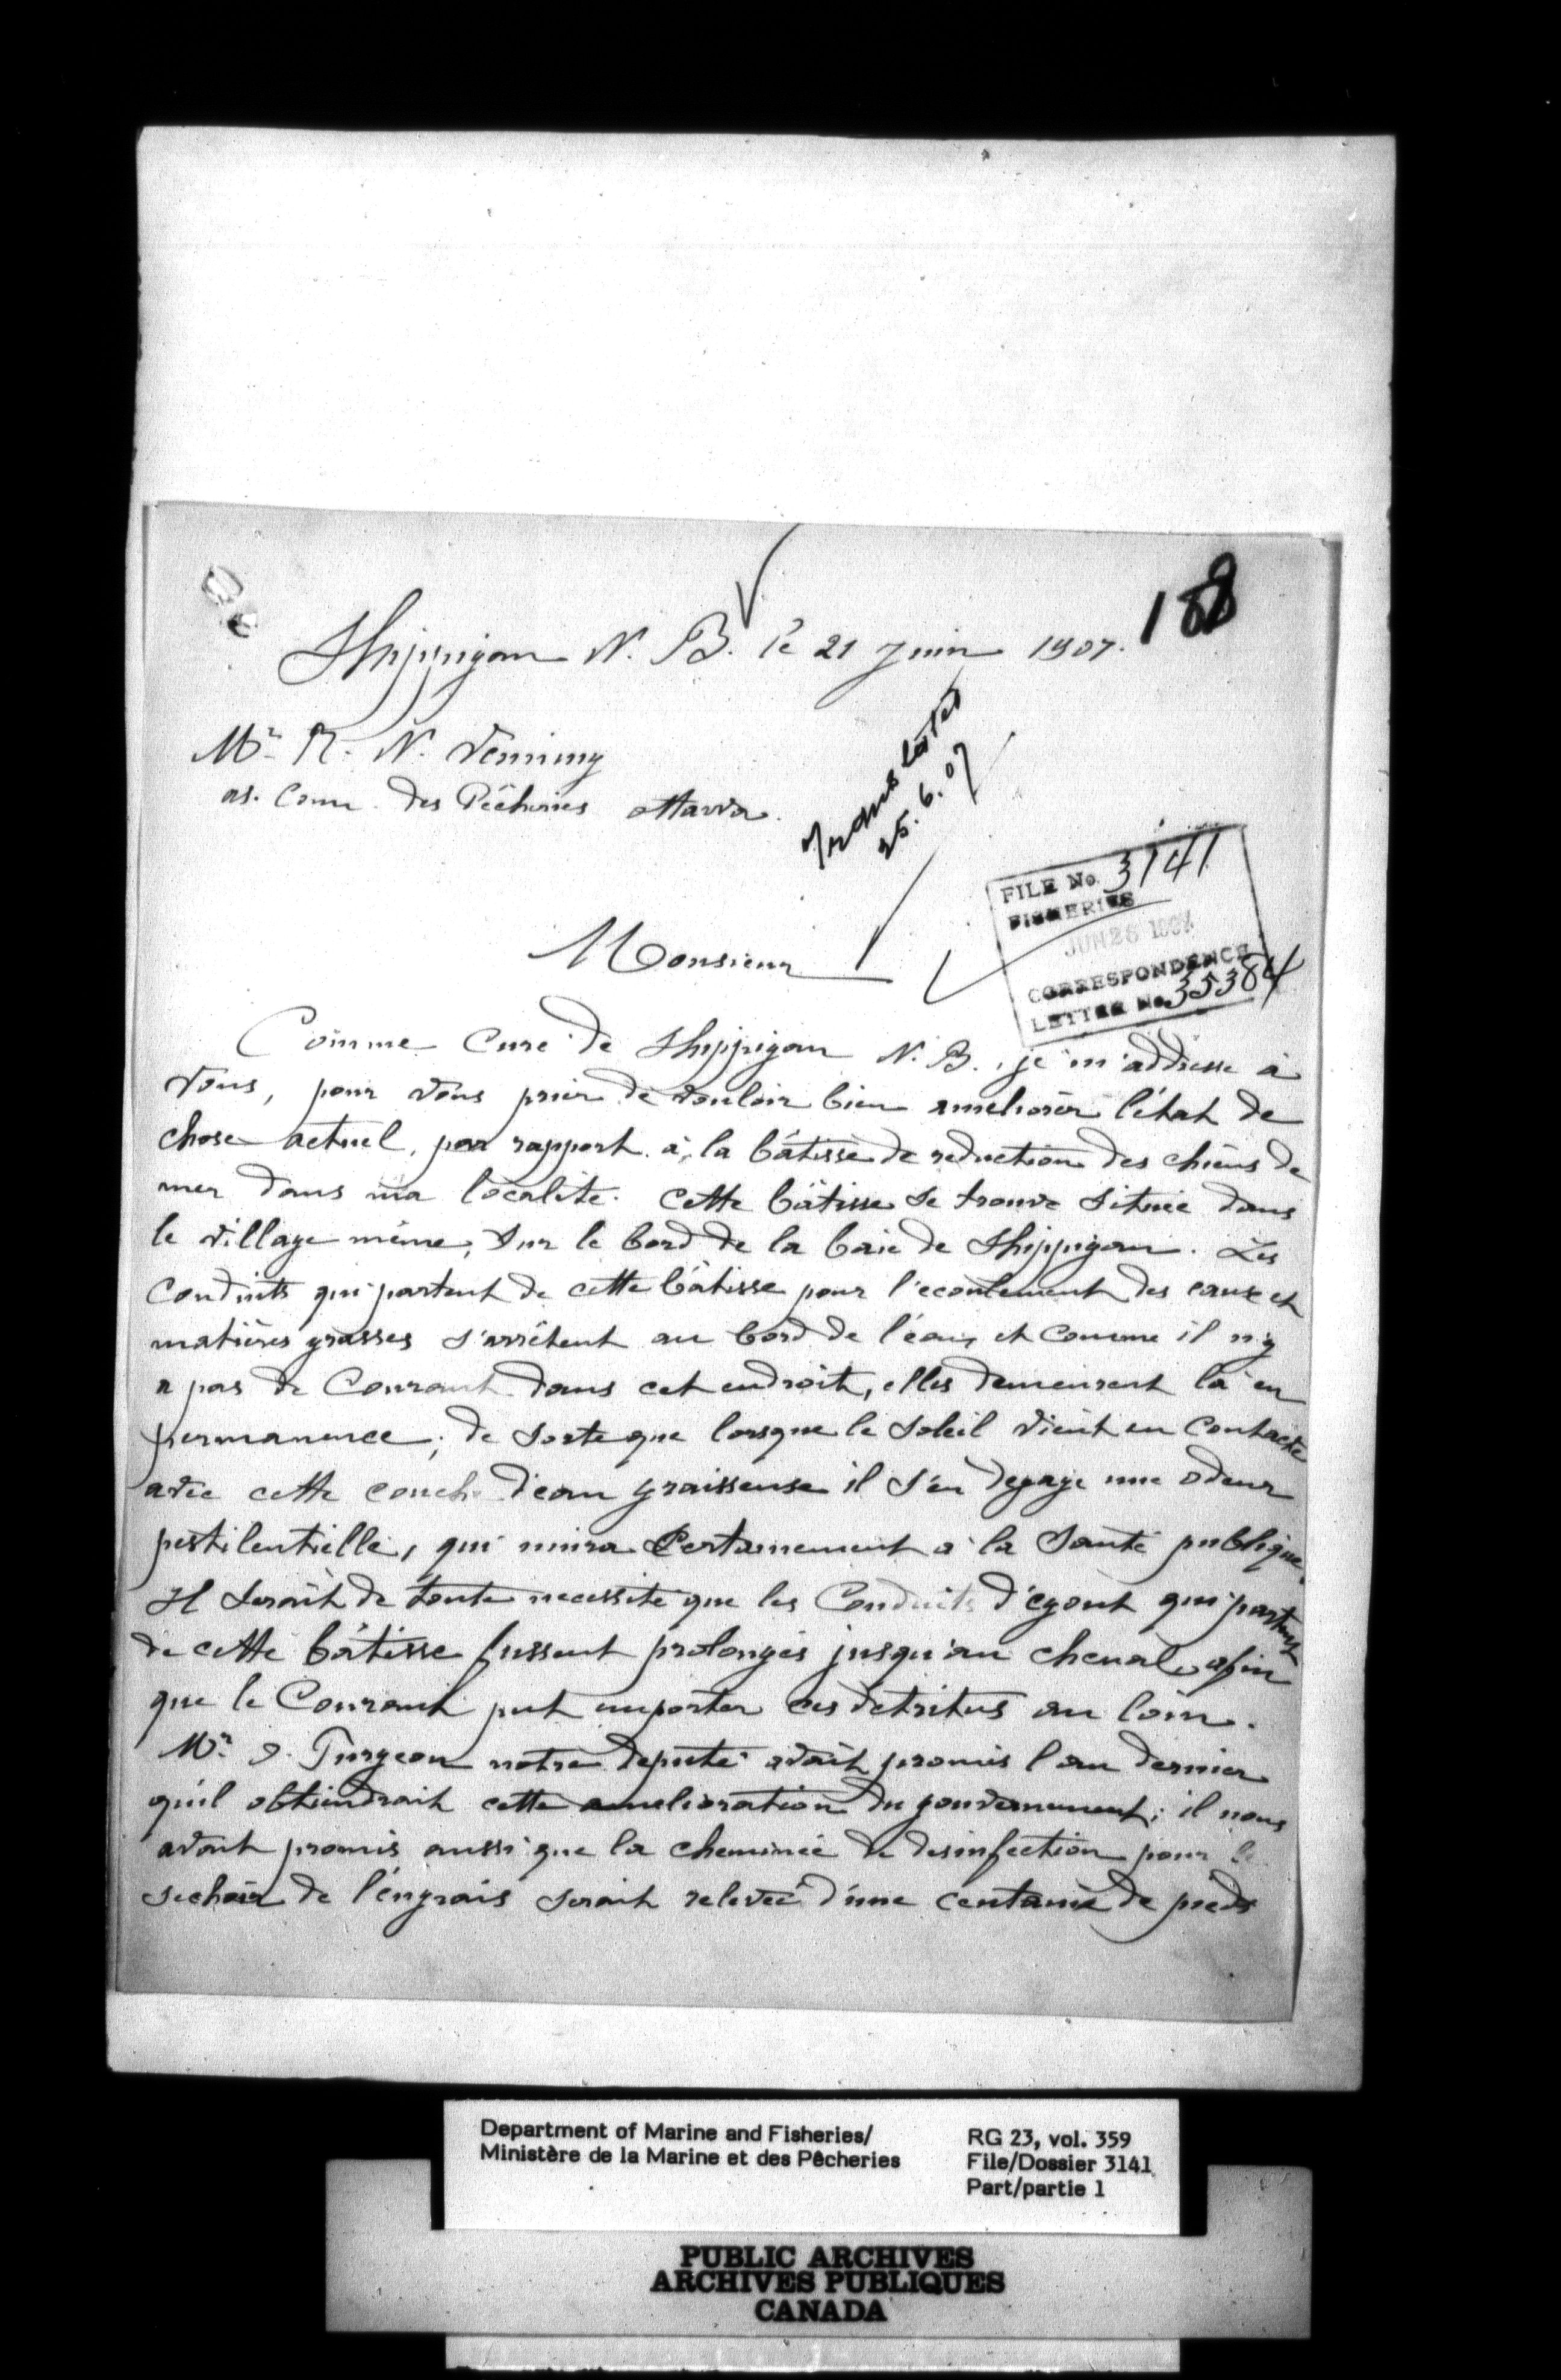 188
Shippigan N. B. le 21 Juin 1907.
Mr. R. N. Venning
as. Com. des Pêcheries Ottawa.
Translated
25.6.07
FILE No. 3141
FISHERIES
JUN 26 1907
CORRESPONDENCE
LETTER No. 35384
Monsieur
Comme Curé de Shippigan N. B., je m'addresse à
vous, pour vous prier de vouloir bien améliorer l'état de
chose actuel, par rapport à la bâtisse de reduction des chiens de
mer dans ma localité. Cette bâtisse se trouve située dans
le village même, sur le bord de la baie de Shippigan. Les
conduits qui partent de cette bâtisse pour l'ecoulement des eaux et
matières grasses s'arrêtent au bord de l'eau, et comme il n'y
a pas de Courant dans cet endroit, elles demeurent là en
permanence; de sorte que lorsque le soleil vient en contacte
avec cette couche d'eau graisseuse il s'en degage une odeur
pestilentielle, qui nuira certainement à la santé publique.
Il serait de toute necessité que les Conduits d'egout qui partent
de cette bâtisse fussent prolongés jusqu'au chenal, afin
que le Courant put emporter ces detritus au loin.
Mr. O. Turgeon notre deputé avait promis l'an dernier
qu'il obtiendrait cette amelioration du gouvernement; il nous
avait promis aussi que la cheminée de desinfection pour le
sechoir de l'engrais serait relevée d'une centaine de pieds
Department of Marine and Fisheries/
Ministère de la Marine et des Pêcheries
RG 23, vol. 359
File/Dossier 3141
Part/partie 1
PUBLIC ARCHIVES
ARCHIVES PUBLIQUES
CANADA